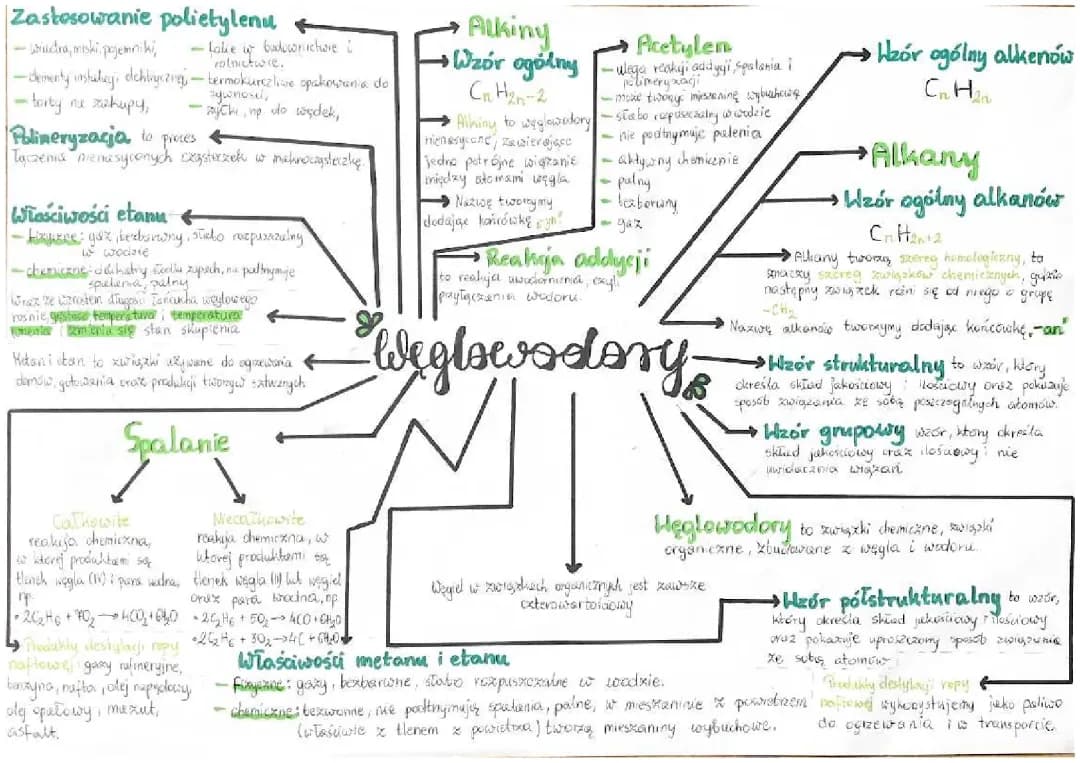 Zastosowanie polietylenu
– wiadra, miski, pojemniki,
– elementy instalacji elektrycznej,
– torby na zakupy,
– folie w budownictwie i
rolnictwie.
– termokurczliwe opakowania do
żywności,
– żyłki, np. do wędek,
Polimeryzacja to proces
łączenia nienasyconych cząsteczek w makrocząsteczkę.
Właściwości etanu
– fizyczne: gaz, bezbarwny, słabo rozpuszczalny
w wodzie
– chemiczne: delikatny, słodki zapach, nie podtrzymuje
spalania, palny
Wraz ze wzrostem długości łańcucha węglowego
rośnie, gęstość temperatura i temperatura
i zmienia się stan skupienia
Metan i etan to związki używane do ogrzewania
domów, gotowania oraz produkcji tworzyw sztucznych
Alkiny
Wzór ogólny
CnH2n-2
Alkiny to węglowodory
nienasycone, zawierające
jedno potrójne wiązanie
między atomami węgla
Nazwę tworzymy
dodając końcówkę „yn"
Acetylen
– ulega reakcji addycji, spalania i
polimeryzacji
– może tworzyć mieszaninę wybuchową
– słabo rozpuszczalny w wodzie
– nie podtrzymuje palenia
– aktywny chemicznie
– palny
– bezbarwny
– gaz
Reakcja addycji
to reakcja uwodornienia, czyli
przyłączenia wodoru.
Wzór ogólny alkenów
CnH2n
Alkany
Wzór ogólny alkanów
CnH2n+2
Alkany tworzą szereg homologiczny, to
znaczy szereg związków chemicznych, gdzie
następny związek różni się od niego o grupę
-CH2
Nazwę alkanów tworzymy dodając końcówkę „-an"
Węglowodory
Wzór strukturalny to wzór, który
określa skład jakościowy i ilościowy oraz pokazuje
sposób związania ze sobą poszczególnych atomów.
Wzór grupowy wzór, który określa
skład jakościowy oraz ilościowy i nie
uwidacznia wiązań
Spalanie
Całkowite
reakcja chemiczna,
w której produktami są
tlenek węgla (IV) i para wodna,
np.
• 2C2H6 + 7O2 → 4CO2 + 6H2O
Niecałkowite
reakcja chemiczna, w
której produktami są
tlenek węgla (II) lub węgiel
oraz para wodna, np
• 2C2H6 + 5O2 → 4CO + 6H2O
• 2C2H6 + 3O2 → 4C + 6H2O
Węglowodory to związki chemiczne, związki
organiczne, zbudowane z węgla i wodoru.
Węgiel w związkach organicznych jest zawsze
czterowartościowy
Wzór półstrukturalny to wzór,
który określa skład jakościowy i ilościowy
oraz pokazuje uproszczony sposób związania
ze sobą atomów
Produkty destylacji ropy
naftowej: gazy rafineryjne,
benzyna, nafta, olej napędowy,
olej opałowy, mazut,
asfalt.
Właściwości metanu i etanu
– fizyczne: gazy, bezbarwne, słabo rozpuszczalne w wodzie.
– chemiczne: bezwonne, nie podtrzymują spalania, palne, w mieszaninie z powietrzem
(właściwie z tlenem z powietrza) tworzą mieszaniny wybuchowe.
Produkty destylacji ropy
naftowej wykorzystujemy jako paliwo
do ogrzewania i w transporcie.